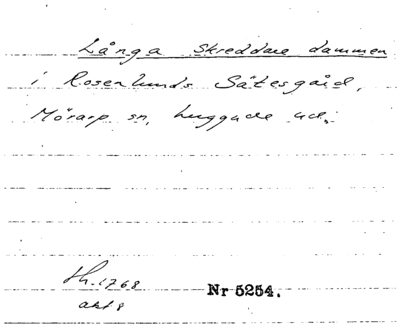 Långa Skreddare dammen
i Rosenlunds Sätesgård,
Mörarp sn, huggude ud:
Sk. 1768
Nr 5254.
akt 8